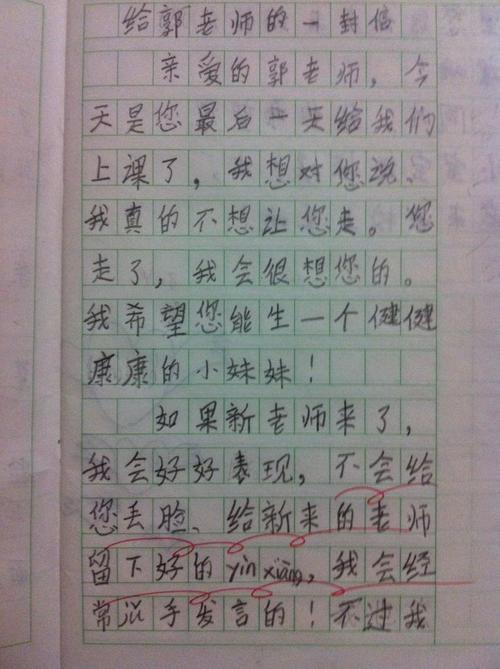 给郭老师的一封信
亲爱的郭老师，今
天是您最后一天给我们
上课了，我想对您说、
我真的不想让您走。您
走了，我会很想您的。
我希望您能生一个健健
康康的小妹妹！
如果新老师来了，
我会好好表现，不会给
您丢脸、给新来的老师
留下好的yìn xiàng，我会经
常举手发言的！不过我